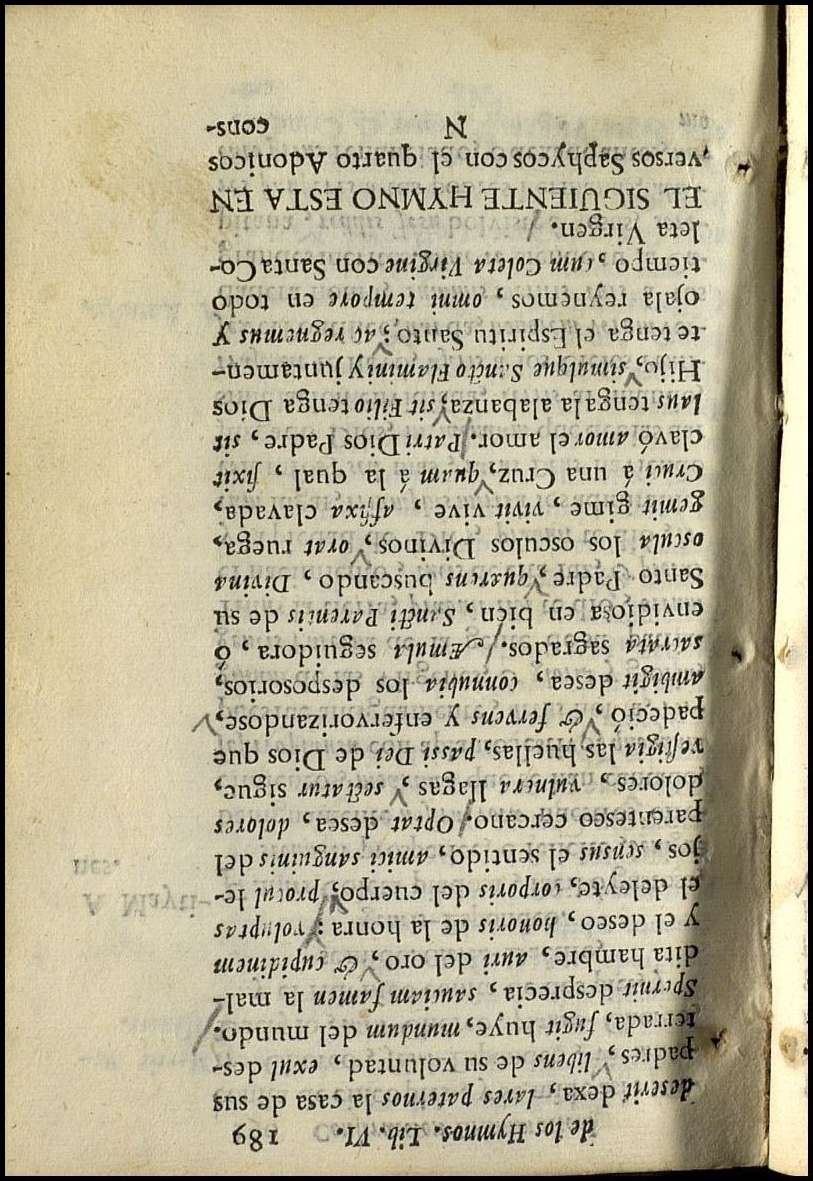 de los Hymnos. Lib. VI. 189
deserit dexa, lares paternos la casa de sus
padres, libens de su voluntad, exul des-
terrada, fugit huye, mundum del mundo.
Spernit desprecia, sanciam famen la mal-
dita hambre, auri del oro, & cupidinem
y el deseo, honoris de la honra: voluptas
el deleyte, corporis del cuerpo, procul le-
jos, sensus el sentido, amici sanguinis del
parentesco cercano. Optat desea, dolores
dolores, vulnera llagas, sectatur sigue,
vestigia las huellas, passi Dei de Dios que
padeció, & fervens y enfervorizandose,
ambigit desea, connubia los desposorios,
sacrata sagrados. Æmula seguidora, ó
envidiosa en bien, Sancti Parentis de su
Santo Padre, quærens buscando, Divina
oscula los osculos Divinos, orat ruega,
gemit gime, vivit vive, affixa clavada,
Cruci á una Cruz, quam á la qual, fixit
clavó amor el amor. Patri Dios Padre, sit
laus tenga la alabanza, sit Filio tenga Dios
Hijo, simulque Sancto Flamini y juntamen-
te tenga el Espiritu Santo; ac regnemus y
ojala reynemos, omni tempore en todo
tiempo, cum Coleta Virgine con Santa Co-
leta Virgen.
EL SIGUIENTE HYMNO ESTA EN
versos Saphycos con el quarto Adonicos
N cons-